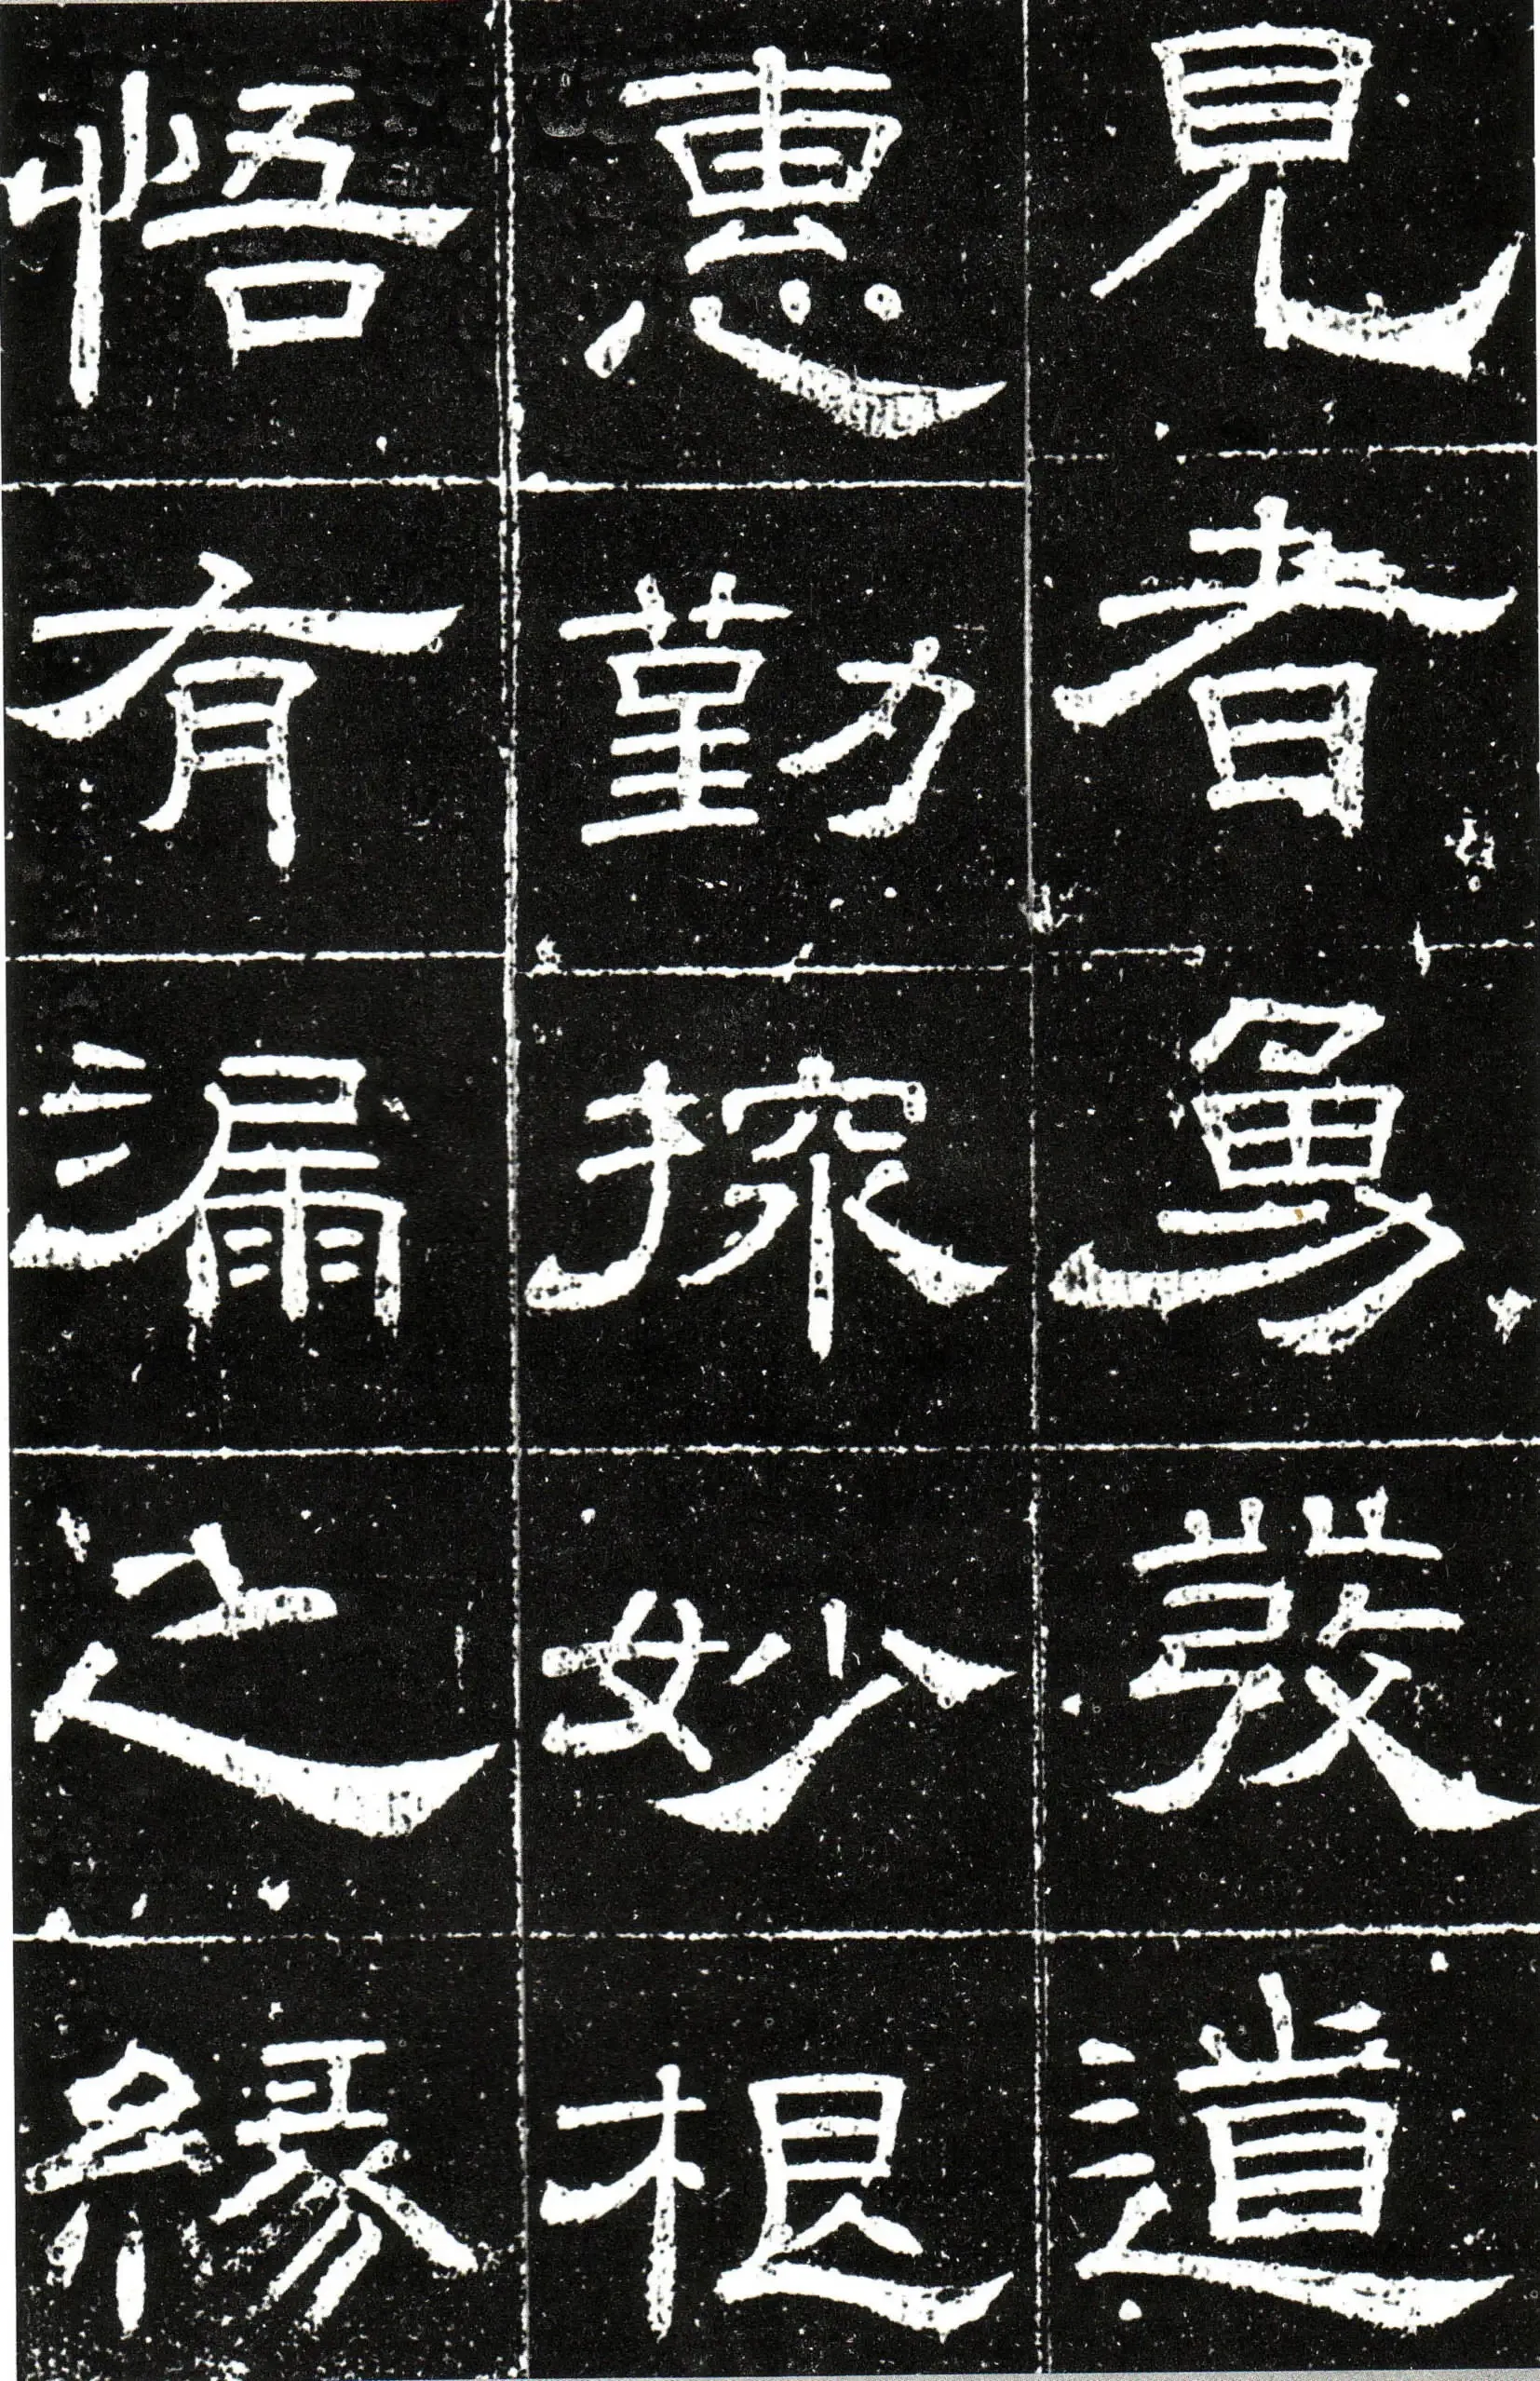 見者勇發道
惠勤探妙根
悟有漏之緣